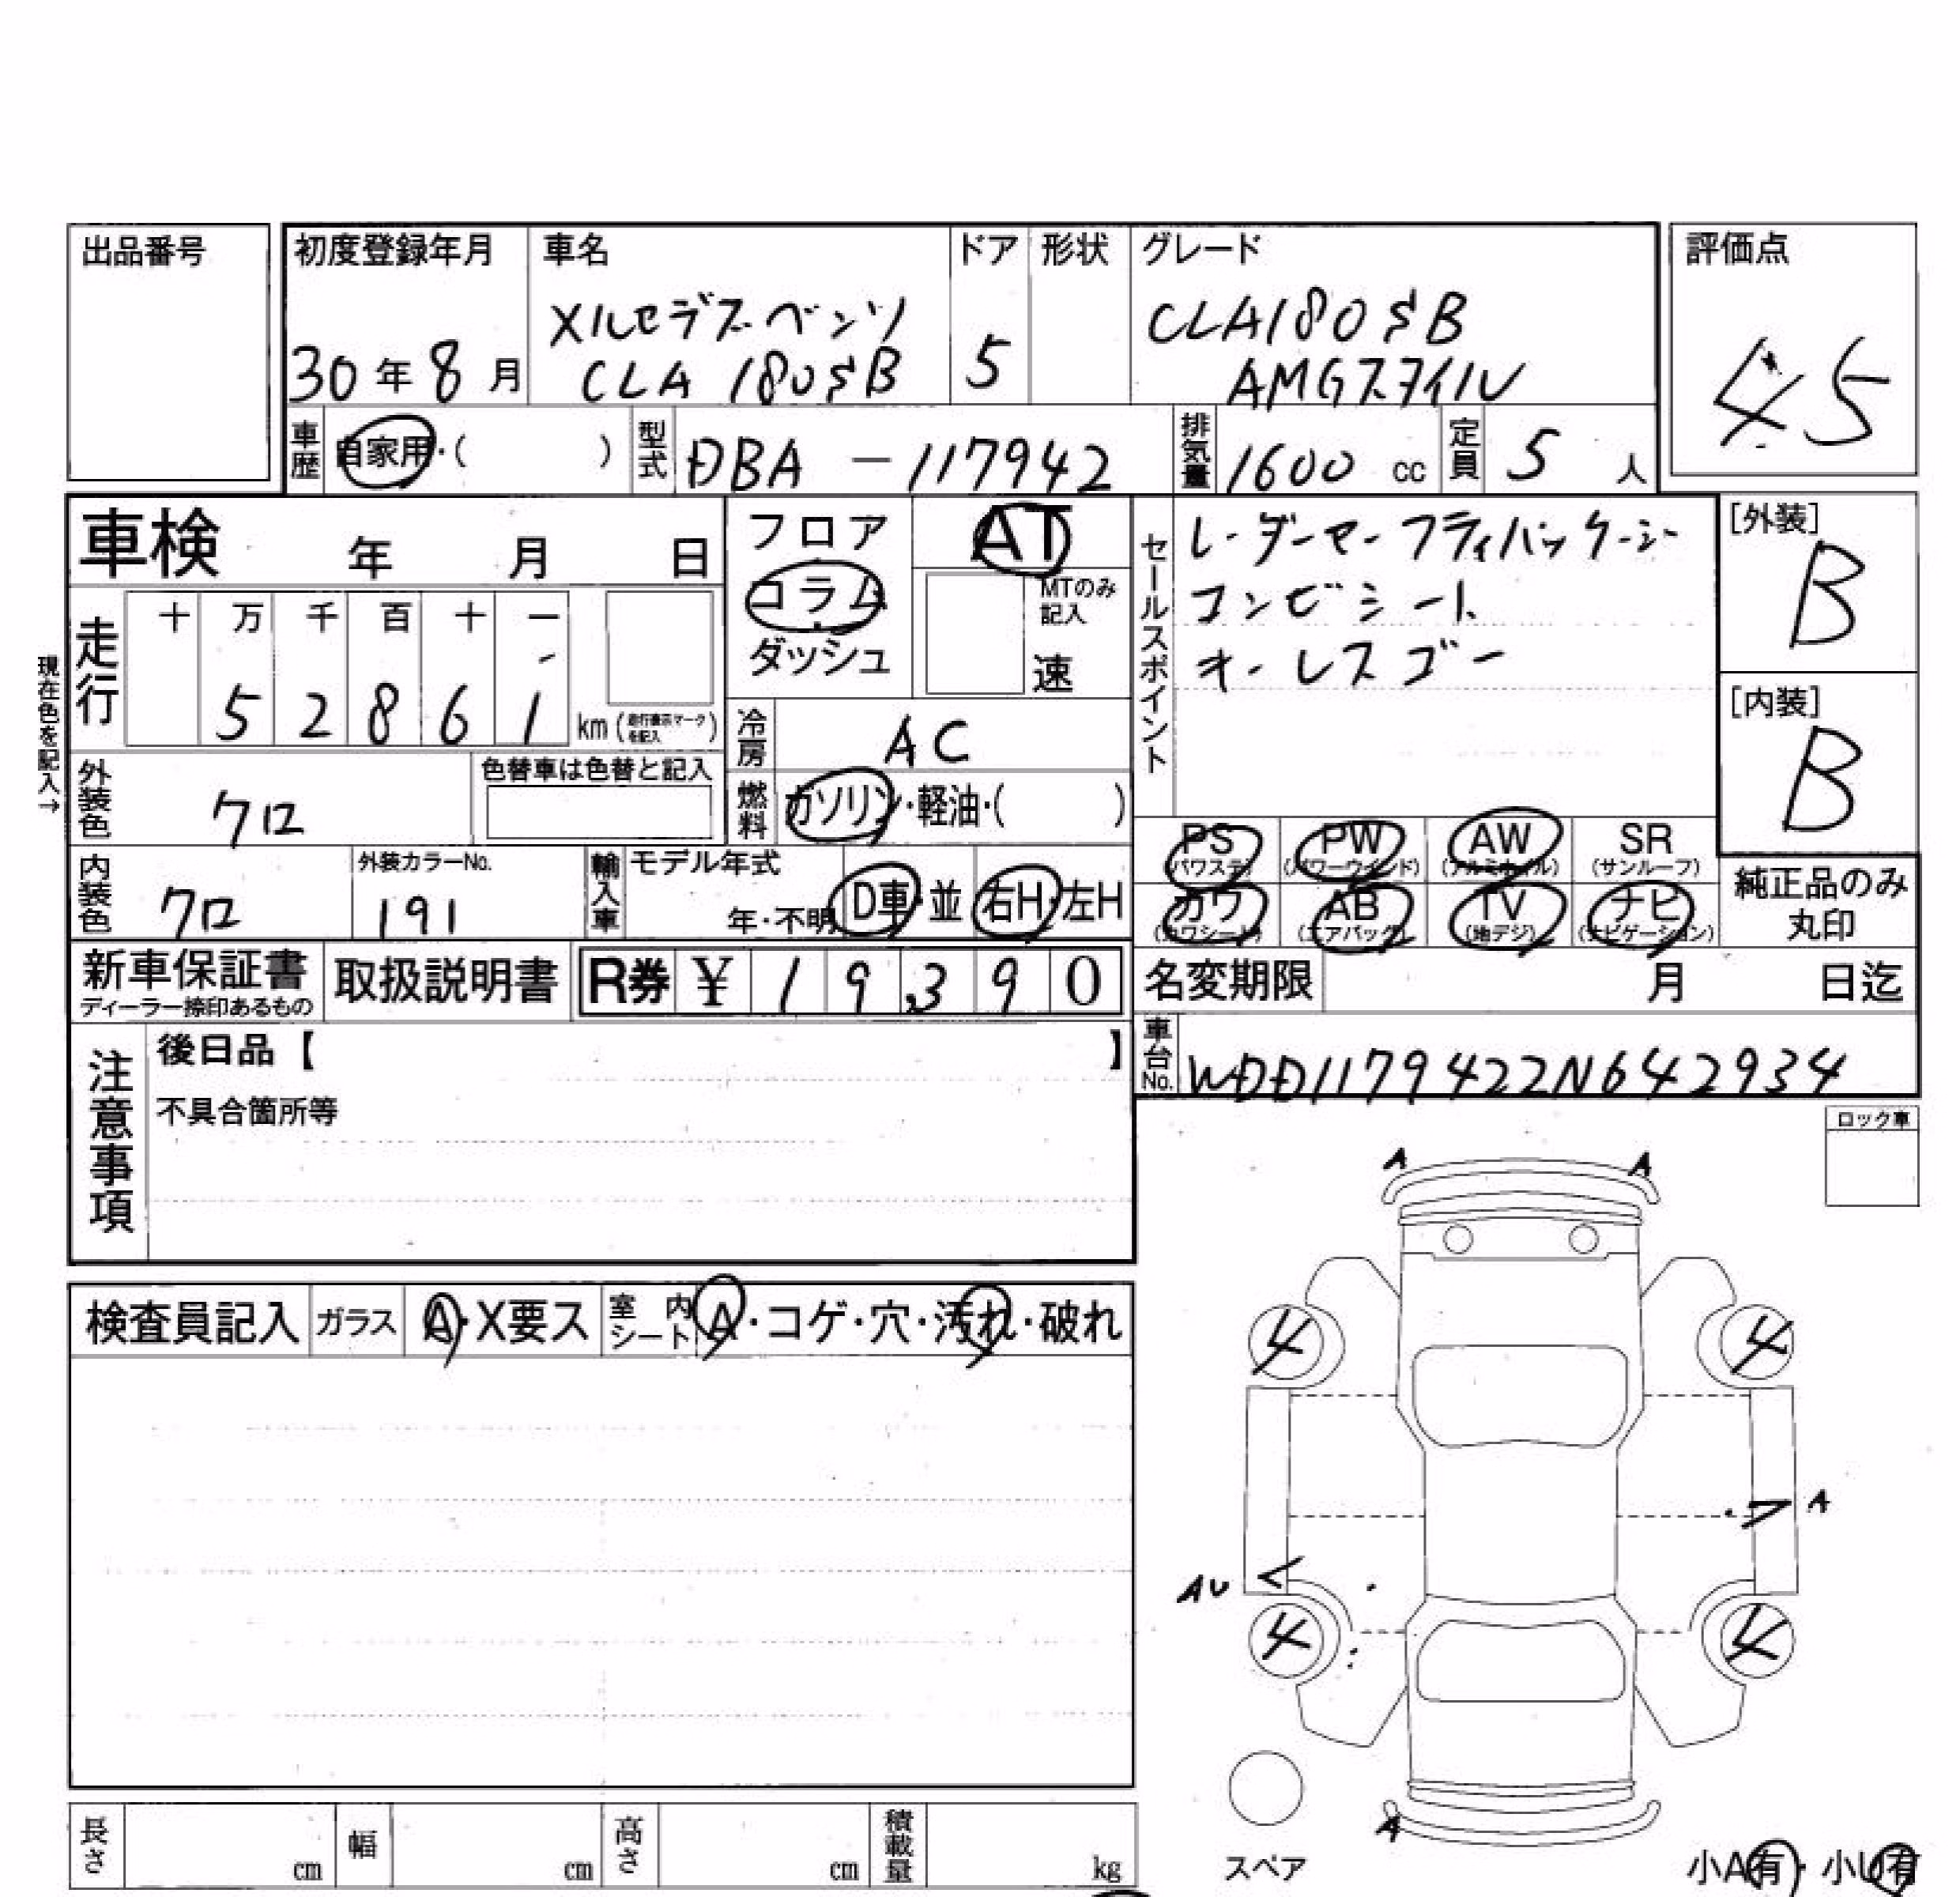 出品番号
初度登録年月 車名 ドア 形状 グレード 評価点
メルセデスベンツ CLA180SB
30年8月 CLA 180SB 5 AMGスタイル 45
車歴 自家用・( ) 型式 DBA-117942 排気量 1600 cc 定員 5 人
車検 年 月 日
フロア
コラム
ダッシュ
AT
MTのみ
記入
速
セールスポイント
レーダーセーフティパッケージ
コンビシート
オールスゴー
[外装]
B
[内装]
B
現在色を記入→
走行 十 万 千 百 十 一
5 2 8 6 1 km (走行表示マークを記入)
冷房 AC
外装色 クロ 色替車は色替と記入
燃料 ガソリン・軽油・( )
PS AW PW SR
(パワステ) (パワーウインド) (アルミホイル) (サンルーフ)
カワ AB TV ナビ
(カワシート) (エアバッグ) (地デジ) (ナビゲーション)
純正品のみ
丸印
内装色 クロ 外装カラーNo. 191 輸入車 モデル年式 年・不明 D車・並 右H・左H
新車保証書
ディーラー捺印あるもの
取扱説明書 R券 ¥ 19,390
名変期限 月 日迄
車台No. WDD1179422N642934
注意事項
後日品【 】
不具合箇所等
ロック車
A A
検査員記入 ガラス A・X要ス 室内シート A・コゲ・穴・汚れ・破れ
4 4
A
AU
4 4
A
スペア
小A有・小U有
長さ cm 幅 cm 高さ cm 積載量 kg